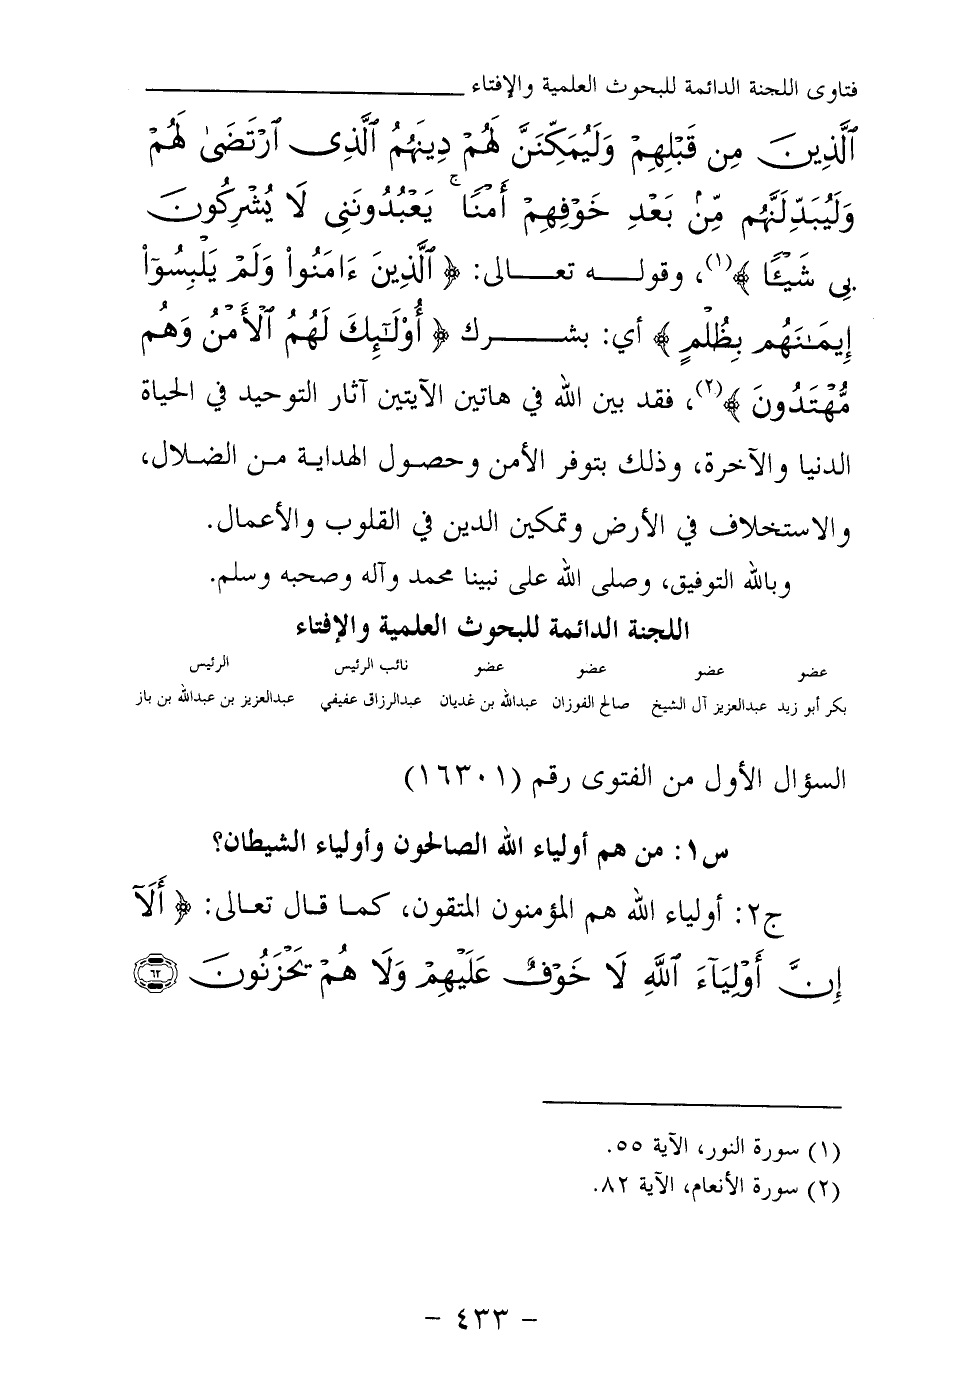 فتاوى اللجنة الدائمة للبحوث العلمية والإفتاء
ٱلَّذِينَ مِن قَبْلِهِمْ وَلَيُمَكِّنَنَّ لَهُمْ دِينَهُمُ ٱلَّذِى ٱرْتَضَىٰ لَهُمْ
وَلَيُبَدِّلَنَّهُم مِّنۢ بَعْدِ خَوْفِهِمْ أَمْنًا ۚ يَعْبُدُونَنِى لَا يُشْرِكُونَ
بِى شَيْـًٔا ﴾(١)، وقوله تعالى: ﴿ ٱلَّذِينَ ءَامَنُوا۟ وَلَمْ يَلْبِسُوٓا۟
إِيمَـٰنَهُم بِظُلْمٍ ﴾ أي: بشرك ﴿ أُو۟لَـٰٓئِكَ لَهُمُ ٱلْأَمْنُ وَهُم
مُّهْتَدُونَ ﴾(٢)، فقد بين الله في هاتين الآيتين آثار التوحيد في الحياة
الدنيا والآخرة، وذلك بتوفر الأمن وحصول الهداية من الضلال،
والاستخلاف في الأرض وتمكين الدين في القلوب والأعمال.
وبالله التوفيق، وصلى الله على نبينا محمد وآله وصحبه وسلم.
اللجنة الدائمة للبحوث العلمية والإفتاء
عضو عضو عضو عضو نائب الرئيس الرئيس
بكر أبو زيد عبدالعزيز آل الشيخ صالح الفوزان عبدالله بن غديان عبدالرزاق عفيفي عبدالعزيز بن عبدالله بن باز
السؤال الأول من الفتوى رقم (١٦٣٠١)
س١: من هم أولياء الله الصالحون وأولياء الشيطان؟
ج٢: أولياء الله هم المؤمنون المتقون، كما قال تعالى: ﴿ أَلَآ
إِنَّ أَوْلِيَآءَ ٱللَّهِ لَا خَوْفٌ عَلَيْهِمْ وَلَا هُمْ يَحْزَنُونَ ٦٢
(١) سورة النور، الآية ٥٥.
(٢) سورة الأنعام، الآية ٨٢.
- ٤٣٣ -